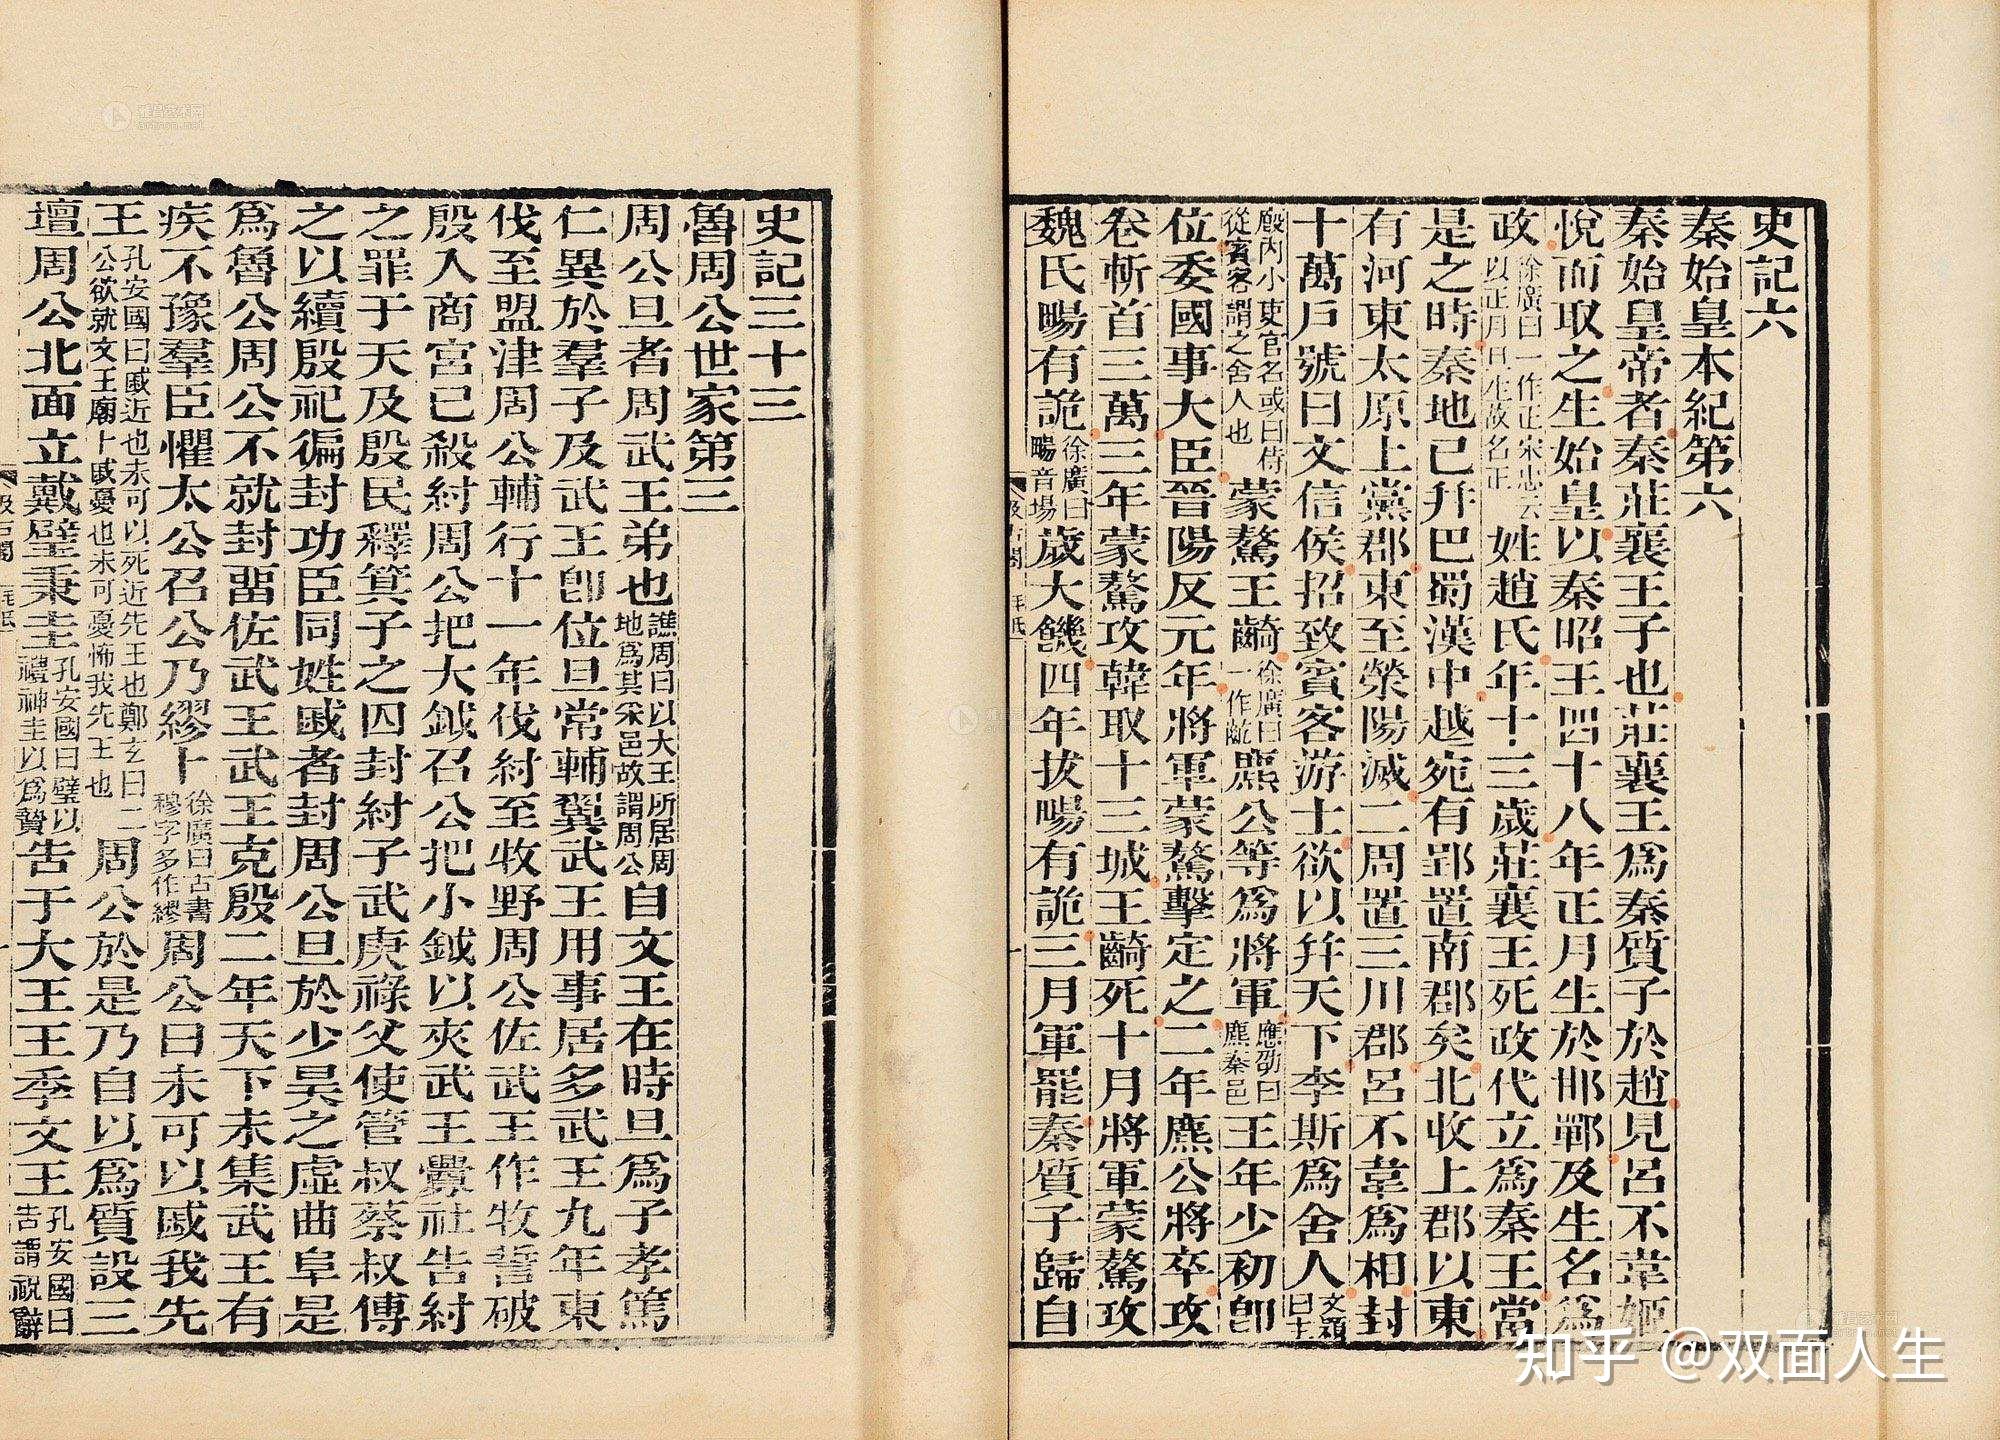 史記六
秦始皇本紀第六
秦始皇帝者秦莊襄王子也莊襄王爲秦質子於趙見呂不韋姬
悅而取之生始皇以秦昭王四十八年正月生於邯鄲及生名爲
政徐廣曰一作正宋忠云以正月旦生故名正姓趙氏年十三歲莊襄王死政代立爲秦王當
是之時秦地已幷巴蜀漢中越宛有郢置南郡矣北收上郡以東
有河東太原上黨郡東至滎陽滅二周置三川郡呂不韋爲相封
十萬戶號曰文信侯招致賓客游士欲以幷天下李斯爲舍人文穎曰主
廄內小吏官名或曰侍從賓客謂之舍人也蒙驁王齮徐廣曰一作齕麃公等爲將軍應劭曰麃秦邑王年少初卽
位委國事大臣晉陽反元年將軍蒙驁擊定之二年麃公將卒攻
卷斬首三萬三年蒙驁攻韓取十三城王齮死十月將軍蒙驁攻
魏氏畼有詭徐廣曰畼音場歲大饑四年拔畼有詭三月軍罷秦質子歸自
史記三十三
魯周公世家第三
周公旦者周武王弟也譙周曰以大王所居周地爲其采邑故謂周公自文王在時旦爲子孝篤
仁異於羣子及武王卽位旦常輔翼武王用事居多武王九年東
伐至盟津周公輔行十一年伐紂至牧野周公佐武王作牧誓破
殷入商宮已殺紂周公把大鉞召公把小鉞以夾武王釁社告紂
之罪于天及殷民釋箕子之囚封紂子武庚祿父使管叔蔡叔傅
之以續殷祀徧封功臣同姓戚者封周公旦於少昊之虛曲阜是
爲魯公周公不就封畱佐武王武王克殷二年天下未集武王有
疾不豫羣臣懼太公召公乃繆卜徐廣曰古書穆字多作繆周公曰未可以戚我先
王孔安國曰戚近也未可以死近先王也鄭玄曰二公欲就文王廟卜戚憂也未可憂怖我先王也周公於是乃自以爲質設三
壇周公北面立戴璧秉圭孔安國曰璧以禮神圭以爲贄告于大王王季文王孔安國曰告謂祝辭
知乎 @双面人生